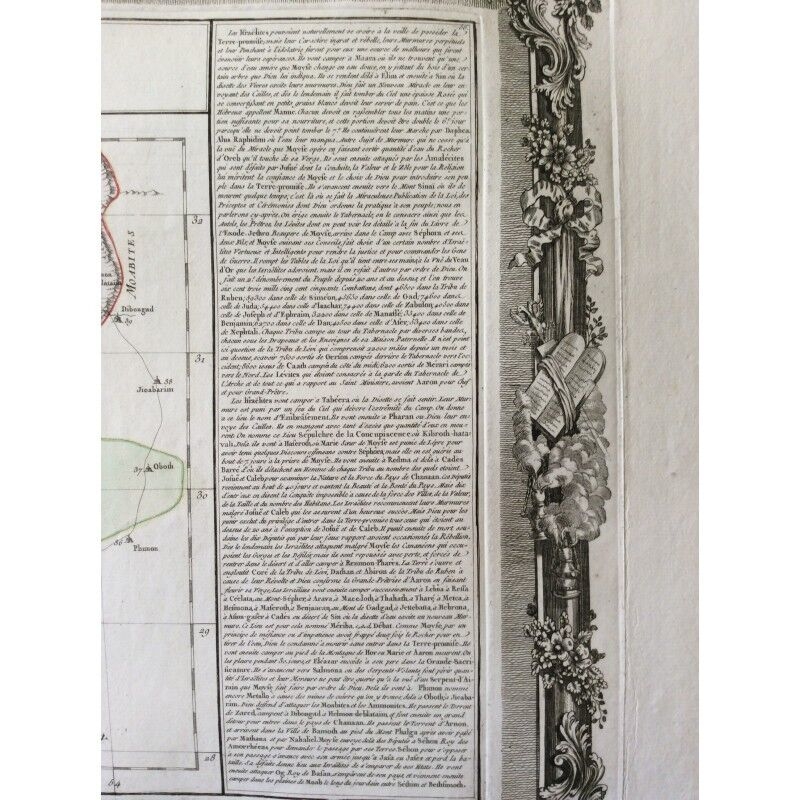 Les Israëlites pouvoient naturellement se croire à la veille de posséder la
Terre-promise; mais leur Caractère ingrat et rébelle, leurs Murmures perpétuels
et leur Penchant à l'idolatrie furent pour eux une source de malheurs qui firent
évanouir leurs espérances. Ils vont camper à Mara où ils ne trouvent qu'une
source d'eau amère que Moyse change en eau douce, en y jettant du bois d'un cer-
tain arbre que Dieu lui indiqua. Ils se rendent dela à Elim et ensuite à Sin où la
disette des Vivres excite leurs murmures. Dieu fait un Nouveau Miracle en leur en
voyant des Cailles, et dès le lendemain il fait tomber du Ciel une épaisse Rosée qui
se convertissant en petits grains blancs devoit leur servir de pain. C'est ce que les
Hébreux appellent Manne. Chacun devoit en rassembler tous les matins une por-
tion suffisante pour sa nourriture, et cette portion devoit être double le 6e. jour
parcequ'elle ne devoit point tomber le 7e. Ils continuèrent leur Marche par Daphca
Alus Raphidim où l'eau leur manqua. Autre Sujet de Murmure qui ne cessa qu'à
la vuë du Miracle que Moyse opère en faisant sortir quantité d'eau du Rocher
d'Oreb qu'il touche de sa Verge. Ils sont ensuite attaqués par les Amalécites
qui sont défaits par Josué dont la Conduite, la Valeur et le Zèle pour la Religion
lui méritent la confiance de Moyse et le choix de Dieu pour introduire son peu
ple dans la Terre-promise. Ils s'avancent ensuite vers le Mont Sinaï où ils de
meurent quelque temps; c'est là où se fait la Miraculeuse Publication de la Loi, des
Préceptes et Cérémonies dont Dieu ordonna la pratique à son peuple; nous en
parlerons cy-après. On érige ensuite le Tabernacle, on le consacre ainsi que les
Autels, les Prêtres, les Lévites dont on peut voir les détails à la fin du Livre de
l'Exode. Jethro Beaupere de Moyse, arrive dans le Camp avec Séphora et ses
deux Fils, et Moyse suivant ses Conseils, fait choix d'un certain nombre d'Israé-
lites Vertueux et Intelligents pour rendre la justice et pour commander les Gens
de Guerre. Il rompt les Tables de la Loi qu'il tient entre ses mains à la Vuë du Veau
d'Or que les Israélites adoroient, mais il en refait d'autres par ordre de Dieu. On
fait un 2e. dénombrement du Peuple depuis 20 ans et au dessus, et l'on trouve
six cent trois mille cinq cent cinquante Combattans, dont 46500 dans la Tribu de
Ruben; 59300 dans celle de Siméon, 45650 dans celle de Gad; 74600 dans
celle de Juda; 54400 dans celle d'Issachar, 57400 dans celle de Zabulon; 40500 dans
celle de Joseph et d'Ephraim, 32200 dans celle de Manassé; 35400 dans celle de
Benjamin, 62700 dans celle de Dan, 41500 dans celle d'Aser, 53400 dans celle
de Nephtali. Chaque Tribu campe au tour du Tabernacle par diverses bandes,
chacun sous les Drapeaux et les Enseignes de sa Maison Paternelle. Il n'est point
ici question de la Tribu de Lévi qui comprenoit 22000 mâles depuis un mois et
au dessus, scavoir 7500 sortis de Gerson campés derrière le Tabernacle vers l'oc
cident, 8600 issus de Caath campés du côté du midi, 6200 sortis de Merari campés
vers le Nord. Les Lévites qui étoient consacrés à la garde du Tabernacle de
l'Arche et de tout ce qui a rapport au Saint Ministère, avoient Aaron pour Chef
et pour Grand-Prêtre.
Les Israélites vont camper à Tabéera où la Disette se fait sentir. Leur Mur-
mure est puni par un feu du Ciel qui dévore l'extrémité du Camp. On donna
à ce lieu le nom d'Embrâsement. Ils vont ensuite à Pharan où Dieu leur en-
voye des Cailles. Ils en mangent avec tant d'excès que quantité d'eux en meu-
rent. On nomme ce Lieu Sépulchre de la Concupiscence où Kibroth-hata-
vah. Delà ils vont à Haseroth, où Marie Sœur de Moyse est punie de Lèpre pour
avoir tenu quelques Discours offensans contre Séphora, mais elle en est guérie au
bout de 7 jours à la prière de Moyse. Ils vont ensuite à Rethma et delà à Cades
Barné d'où ils détachent un Homme de chaque Tribu au nombre des quels étoient
Josué et Caleb pour examiner la Nature et la Force du Pays de Chanaan. Ces Députés
reviennent au bout de 40 jours et vantent la Beauté et la Bonté du Pays. Mais dix
d'entr'eux en disent la Conquête impossible à cause de la force des Villes, de la Valeur,
de la Taille et du nombre des Habitans. Les Israélites recommencent leurs Murmures
malgré Josué et Caleb qui les assurent d'un heureux succès. Mais Dieu pour les
punir exclut du privilege d'entrer dans la Terre-promise tous ceux qui étoient au
dessus de 20 ans à l'exception de Josué et de Caleb. Il punit ensuite de mort sou-
daine les dix Députés qui par leur faux rapport avoient occasionnés la Rébellion.
Dès le lendemain les Israélites attaquent malgré Moyse les Cananéens qui occu-
poient les Gorges et les Défilés, mais ils sont repoussés avec perte, et forcés de
rentrer dans le désert et d'aller camper à Remmon-Phares. La Terre s'ouvre et
engloutit Coré de la Tribu de Lévi, Dathan et Abiron de la Tribu de Ruben à
cause de leur Révolte et Dieu confirme la Grande Prêtrise d'Aaron en faisant
fleurir sa Verge. Les Israélites vont ensuite camper successivement à Lebna à Ressa
à Céélata, au Mont-Sépher, à Arada, à Maceloth à Thahath, à Tharé à Metca, à
Hesmona, à Maseroth, à Benjaacan, au Mont de Gadgad, à Jettebata, à Hebrona,
à Asiongaber à Cades au désert de Sin où la disette d'eau excite un nouveau Mur-
mure. Ce Lieu est pour cela nommé Mériba, c.a.d. Débat. Comme Moyse, par un
principe de méfiance ou d'impatience avoit frappé deux fois le Rocher pour en
tirer de l'eau, Dieu le condamne à mourir sans entrer dans la Terre-promise. Ils
vont ensuite camper au pied de la Montagne de Hor où Marie et Aaron meurent. On
les pleure pendant 30 jours, et Eléazar succède à son père dans la Grande-Sacri-
ficature. Ils s'avancent vers Salmona où des Serpents-Volants font périr quanti-
té d'Israélites et leur Morsure ne peut être guérie qu'à la vuë d'un Serpent-d'Ai-
rain que Moyse fait faire par ordre de Dieu. Delà ils vont à Phunon nommé
encore Metallo à cause des mines de cuivre qu'on y trouve, delà à Oboth, à Jieaba-
rim. Dieu défend d'attaquer les Moabites et les Ammonites. Ils passent le Torrent
de Zared, campent à Dibongad à Helmon-deblataim, et font ensuite un grand
détour pour entrer dans le pays de Chanaan. Ils passent le Torrent d'Arnon,
et arrivent dans la Ville de Bamoth au pied du Mont Phalga après avoir passé
par Mathana et par Nahaliel. Moyse envoye delà des Députés à Séhon Roy des
Amorrhéens pour demander le passage par ses Terres. Séhon pour s'opposer
à son passage s'avance avec son armée jusqu'à Jasa ou Jasen et perd la ba-
taille. Sa défaite donne lieu aux Israélites de s'emparer de ses Etats. Ils vont
ensuite attaquer Og Roy de Basan, s'emparent de son pays, et viennent ensuite
camper dans les plaines de Moab le long du Jourdain entre Sétim et Bethsimoth.
32
MOABITES
Dibongad
39
31
38
Jieabarim
37
Oboth
30
36
Phunon
29
28
64